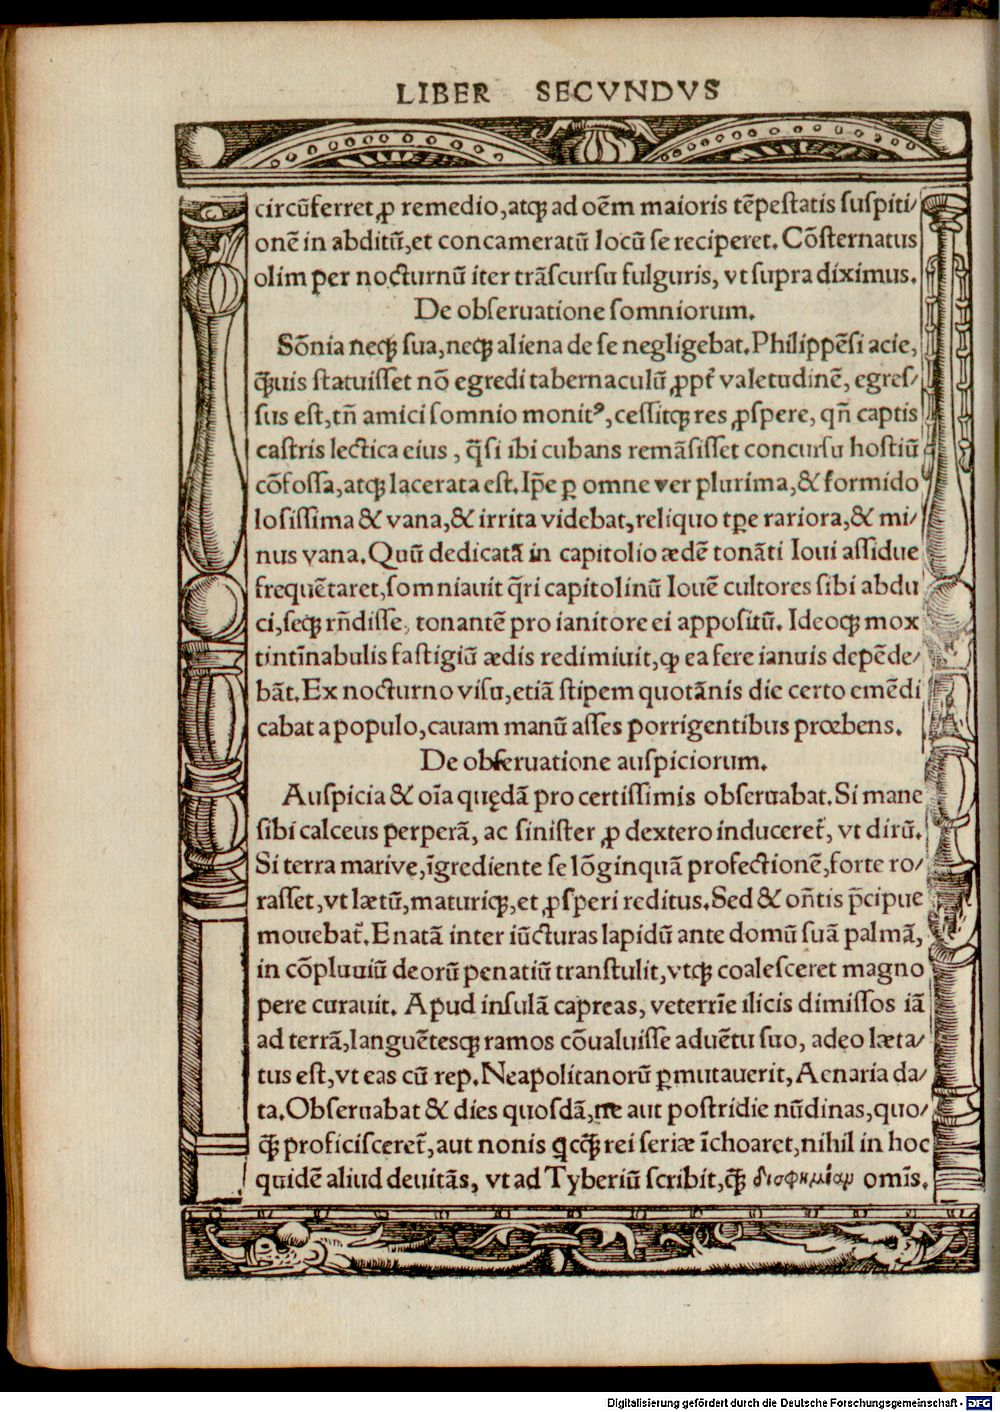 LIBER SECVNDVS
circūferret ꝓ remedio, atqꝫ ad oēm maioris tēpestatis suspiti/
onē in abditū, et concameratū locū se reciperet. Cōsternatus
olim per nocturnū iter trāscursu fulguris, vt supra diximus.
De obseruatione somniorum.
Sōnia neqꝫ sua, neqꝫ aliena de se negligebat. Philippēsi acie,
q̄uis statuisset nō egredi tabernaculū ꝓpt̄ valetudinē, egres/
sus est, tn̄ amici somnio monitꝰ, cessitqꝫ res ꝓspere, qn̄ captis
castris lectica eius, q̄si ibi cubans remāsisset concursu hostiū
cōfossa, atqꝫ lacerata est. Ip̄e ꝑ omne ver plurima, & formido
losissima & vana, & irrita videbat, reliquo tp̄e rariora, & mi/
nus vana. Quū dedicatā in capitolio ædē tonāti Ioui assidue
frequētaret, somniauit q̄ri capitolinū Iouē cultores sibi abdu
ci, seqꝫ rn̄disse, tonantē pro ianitore ei appositū. Ideoqꝫ mox
tintīnabulis fastigiū ædis redimiuit, ꝙ ea fere ianuis depēde/
bāt. Ex nocturno visu, etiā stipem quotānis die certo emēdi
cabat a populo, cauam manū asses porrigentibus prœbens.
De obseruatione auspiciorum.
Auspicia & oīa quędā pro certissimis obseruabat. Si mane
sibi calceus perperā, ac sinister ꝓ dextero induceret̄, vt dirū.
Si terra marive, īgrediente se lōginquā profectionē, forte ro/
rasset, vt lætū, maturiqꝫ, et ꝓsperi reditus. Sed & on̄tis p̄cipue
mouebat̄. Enatā inter iūcturas lapidū ante domū suā palmā,
in cōpluuiū deorū penatiū transtulit, vtqꝫ coalesceret magno
pere curauit. Apud insulā capreas, veterrīe ilicis dimissos iā
ad terrā, languētesqꝫ ramos cōualuisse aduētu suo, adeo læta/
tus est, vt eas cū rep. Neapolitanorū ꝑmutauerit, Aenaria da/
ta. Obseruabat & dies quosdā, ne aut postridie nūdinas, quo/
q̄ꝫ proficisceret̄, aut nonis qcq̄ꝫ rei seriæ īchoaret, nihil in hoc
quidē aliud deuitās, vt ad Tyberiū scribit, q̄ꝫ δισφημίαμ omīs.
Digitalisierung gefördert durch die Deutsche Forschungsgemeinschaft - DFG